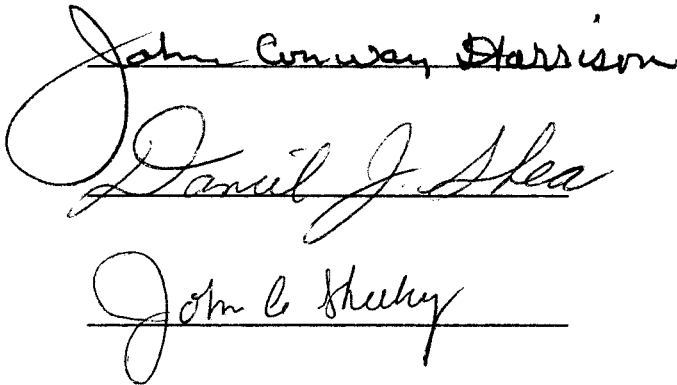 John Conway Harrison
Daniel J. Shea
John C Sheehy